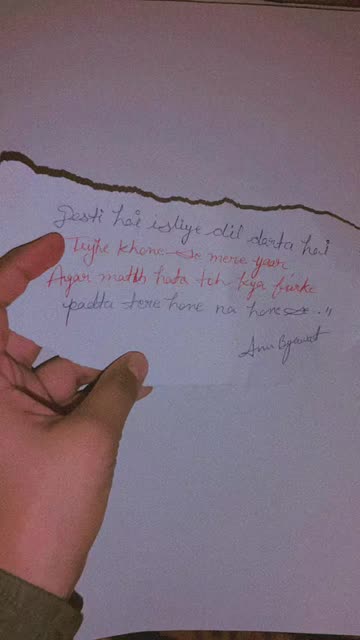 Dosti hai isliye dil darta hai
Tujhe khone se mere yaar
Agar matlb hota toh kya furke
padta tere hone na hone se.."